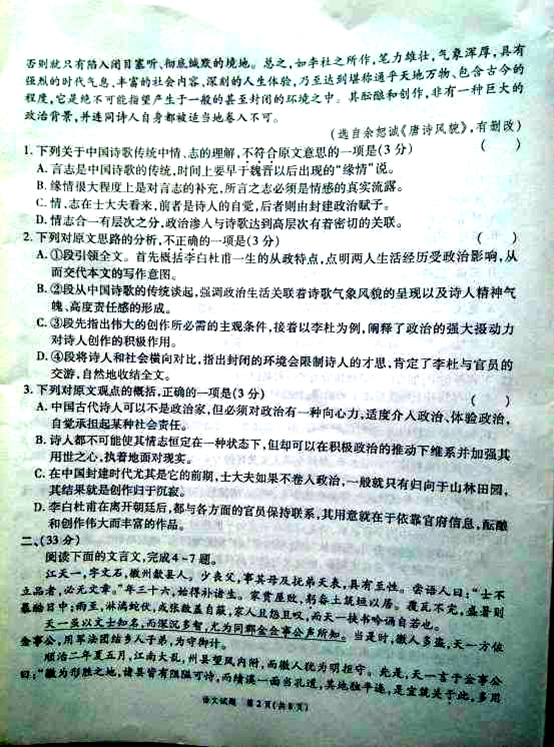 否则就只有陷入闭目塞听、彻底缄默的境地。总之,如李杜之所作,笔力雄壮,气象浑厚,具有
强烈的时代气息、丰富的社会内容、深刻的人生体验,乃至达到堪称通乎天地万物、包含古今的
程度,它是绝不可能指望产生于一般的甚至封闭的环境之中。其酝酿和创作,非有一种巨大的
政治背景,并连同诗人自身都被适当地卷入不可。
(选自余恕诚《唐诗风貌》,有删改)
1. 下列关于中国诗歌传统中情、志的理解,不符合原文意思的一项是(3分) ( )
A. 言志是中国诗歌的传统,时间上要早于魏晋以后出现的“缘情”说。
B. 缘情很大程度上是对言志的补充,所言之志必须是情感的真实流露。
C. 情、志在士大夫看来,前者是诗人的自觉,后者则由封建政治赋予。
D. 情志合一有层次之分,政治渗入与诗歌达到高层次有着密切的关联。
2. 下列对原文思路的分析,不正确的一项是(3分) ( )
A. ①段引领全文。首先概括李白杜甫一生的从政特点,点明两人生活经历受政治影响,从
而交代本文的写作意图。
B. ②段从中国诗歌的传统谈起,强调政治生活关联着诗歌气象风貌的呈现以及诗人精神气
魄、高度责任感的形成。
C. ③段先指出伟大的创作所必需的主观条件,接着以李杜为例,阐释了政治的强大摄动力
对诗人创作的积极作用。
D. ④段将诗人和社会横向对比,指出封闭的环境会限制诗人的才思,肯定了李杜与官员的
交游,自然地收结全文。
3. 下列对原文观点的概括,正确的一项是(3分) ( )
A. 中国古代诗人可以不是政治家,但必须对政治有一种向心力,适度介入政治、体验政治,
自觉承担起某种社会责任。
B. 诗人都不可能使其情志恒定在一种状态下,但却可以在积极政治的推动下维系并加强其
用世之心,执着地面对现实。
C. 在中国封建时代尤其是它的前期,士大夫如果不卷入政治,一般就只有归向于山林田园,
其结果就是创作归于沉寂。
D. 李白杜甫在离开朝廷后,都与各方面的官员保持联系,其用意就在于依靠官府信息,酝酿
和创作伟大而丰富的作品。
二、(33分)
阅读下面的文言文,完成4~7题。
江天一,字文石,徽州歙县人。少丧父,事其母及抚弟天表,具有至性。尝语人曰:“士不
立品者,必无文章。”年三十六,始得补诸生。家贫屋败,躬畚土筑垣以居。覆瓦不完,盛暑则
暴酷日中;雨至,淋漓蛇伏,或张敝盖自蔽,家人且怨且叹,而天一挟书吟诵自若也。
天一虽以文士知名,而深沉多智,尤为同郡金佥事公声所知。当是时,徽人多盗,天一方佐
佥事公,用军法团结乡人子弟,为守御计。
顺治二年夏五月,江南大乱,州县望风内附,而徽人犹为明拒守。先是,天一言于佥事公
曰:“徽为形胜之地,诸县皆有阻隘可恃,而绩溪一面当孔道,其地独平迤,是宜筑关于此,多用
语文试题 第2页(共8页)